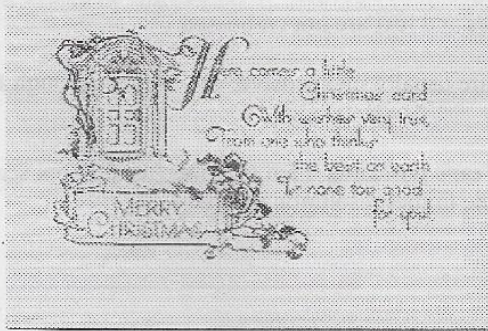 Here comes a little
Christmas card
With wishes very true,
From one who thinks
the best on earth
Is none too good
for you!
MERRY
CHRISTMAS